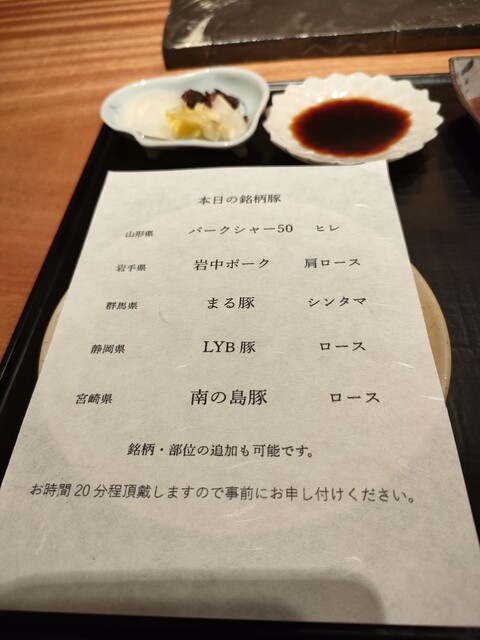 本日の銘柄豚
山形県 バークシャー50 ヒレ
岩手県 岩中ポーク 肩ロース
群馬県 まる豚 シンタマ
静岡県 LYB豚 ロース
宮崎県 南の島豚 ロース
銘柄・部位の追加も可能です。
お時間20分程頂戴しますので事前にお申し付けください。